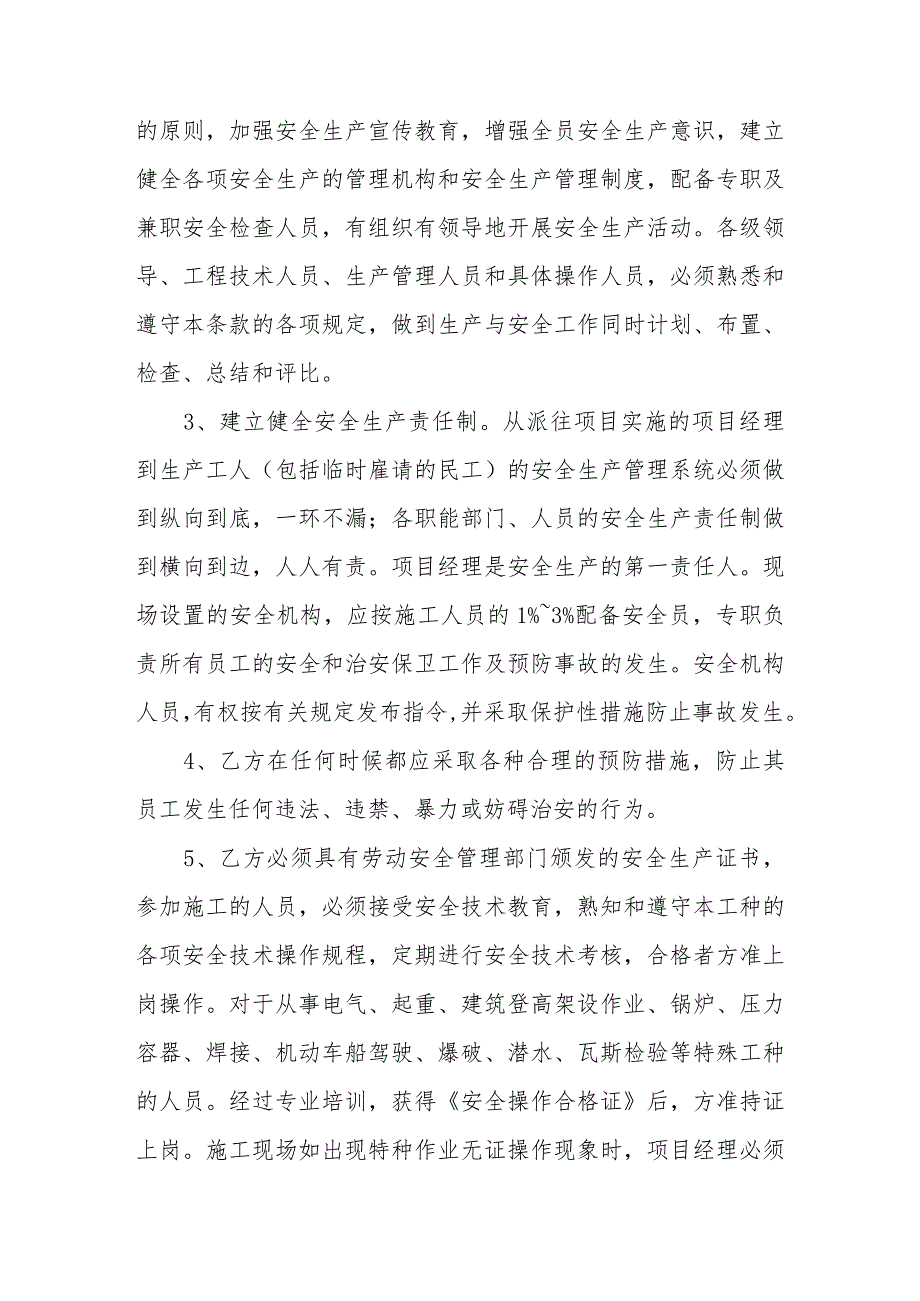 的原则，加强安全生产宣传教育，增强全员安全生产意识，建立
健全各项安全生产的管理机构和安全生产管理制度，配备专职及
兼职安全检查人员，有组织有领导地开展安全生产活动。各级领
导、工程技术人员、生产管理人员和具体操作人员，必须熟悉和
遵守本条款的各项规定，做到生产与安全工作同时计划、布置、
检查、总结和评比。
3、建立健全安全生产责任制。从派往项目实施的项目经理
到生产工人（包括临时雇请的民工）的安全生产管理系统必须做
到纵向到底，一环不漏；各职能部门、人员的安全生产责任制做
到横向到边，人人有责。项目经理是安全生产的第一责任人。现
场设置的安全机构，应按施工人员的1%~3%配备安全员，专职负
责所有员工的安全和治安保卫工作及预防事故的发生。安全机构
人员,有权按有关规定发布指令,并采取保护性措施防止事故发生。
4、乙方在任何时候都应采取各种合理的预防措施，防止其
员工发生任何违法、违禁、暴力或妨碍治安的行为。
5、乙方必须具有劳动安全管理部门颁发的安全生产证书，
参加施工的人员，必须接受安全技术教育，熟知和遵守本工种的
各项安全技术操作规程，定期进行安全技术考核，合格者方准上
岗操作。对于从事电气、起重、建筑登高架设作业、锅炉、压力
容器、焊接、机动车船驾驶、爆破、潜水、瓦斯检验等特殊工种
的人员。经过专业培训，获得《安全操作合格证》后，方准持证
上岗。施工现场如出现特种作业无证操作现象时，项目经理必须